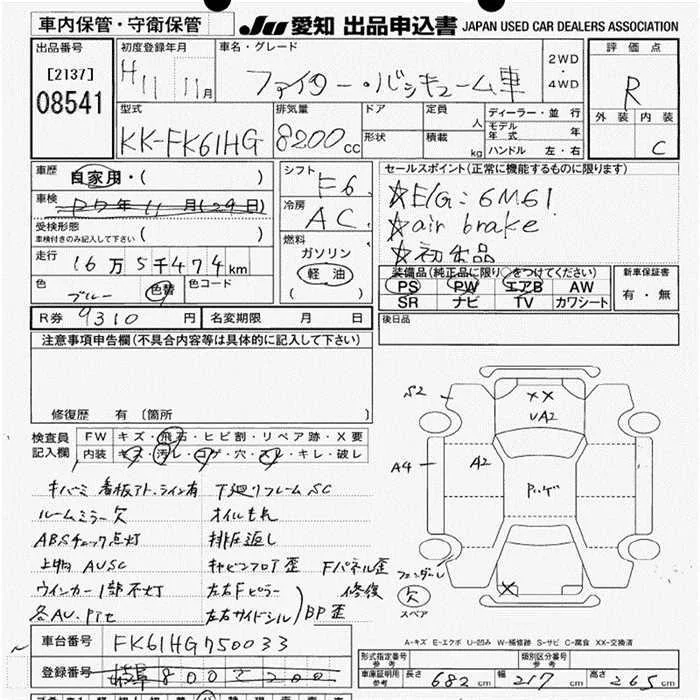 車内保管・守衛保管
JU 愛知 出品申込書 JAPAN USED CAR DEALERS ASSOCIATION
出品番号
[2137]
08541
初度登録年月
H11 11月
車名・グレード
ファイター・バンキューム車
2WD
・
4WD
評価点
R
外装 内装
C
型式
KK-FK61HG
排気量
8200cc
ドア
形状
定員
人
積載
kg
ディーラー・並行
モデル年式 年
ハンドル 左・右
車歴
自家用・( )
車検
R7年11月(29日)
受検形態
車検付きのみ記入して下さい ( )
走行
16万5千474km
色
ブルー
色替
色コード
シフト
F6
冷房
AC
燃料
ガソリン
軽油
( )
セールスポイント(正常に機能するものに限ります)
☆E/G:6M61
☆air brake
☆初出品
装備品(純正品に限り○をつけてください)
PS PW エアB AW
SR ナビ TV カワシート
新車保証書
有・無
後日品
R券 9310円
名変期限 月 日
注意事項申告欄(不具合内容等は具体的に記入して下さい)
修復歴 有 〔箇所 〕
検査員
記入欄
FW キズ・飛石・ヒビ割・リペア跡・X要
内装 キズ・汚レ・コゲ・穴・スレ・キレ・破レ
キバミ 看板アト、ライン有 下廻りフレームSC
ルームミラー欠 オイルもれ
ABSチェック点灯 排圧返し
上物AUSC キャビンフロア歪 Fパネル歪
ウインカー1部不灯 左右Fピラー 修復
各AU、Pте 左右サイドシル BP歪
S2
XX
UA2
A4
A2
Pッゲ
X
フェンダーL
欠
スペア
A-キズ E-エクボ U-凹み W-補修跡 S-サビ C-腐食 XX-交換済
車台番号 FK61HG750033
登録番号
形式指定番号
参考
類別区分番号
参考
車庫証明用
参考
長さ 682cm 幅 217cm 高さ 265cm